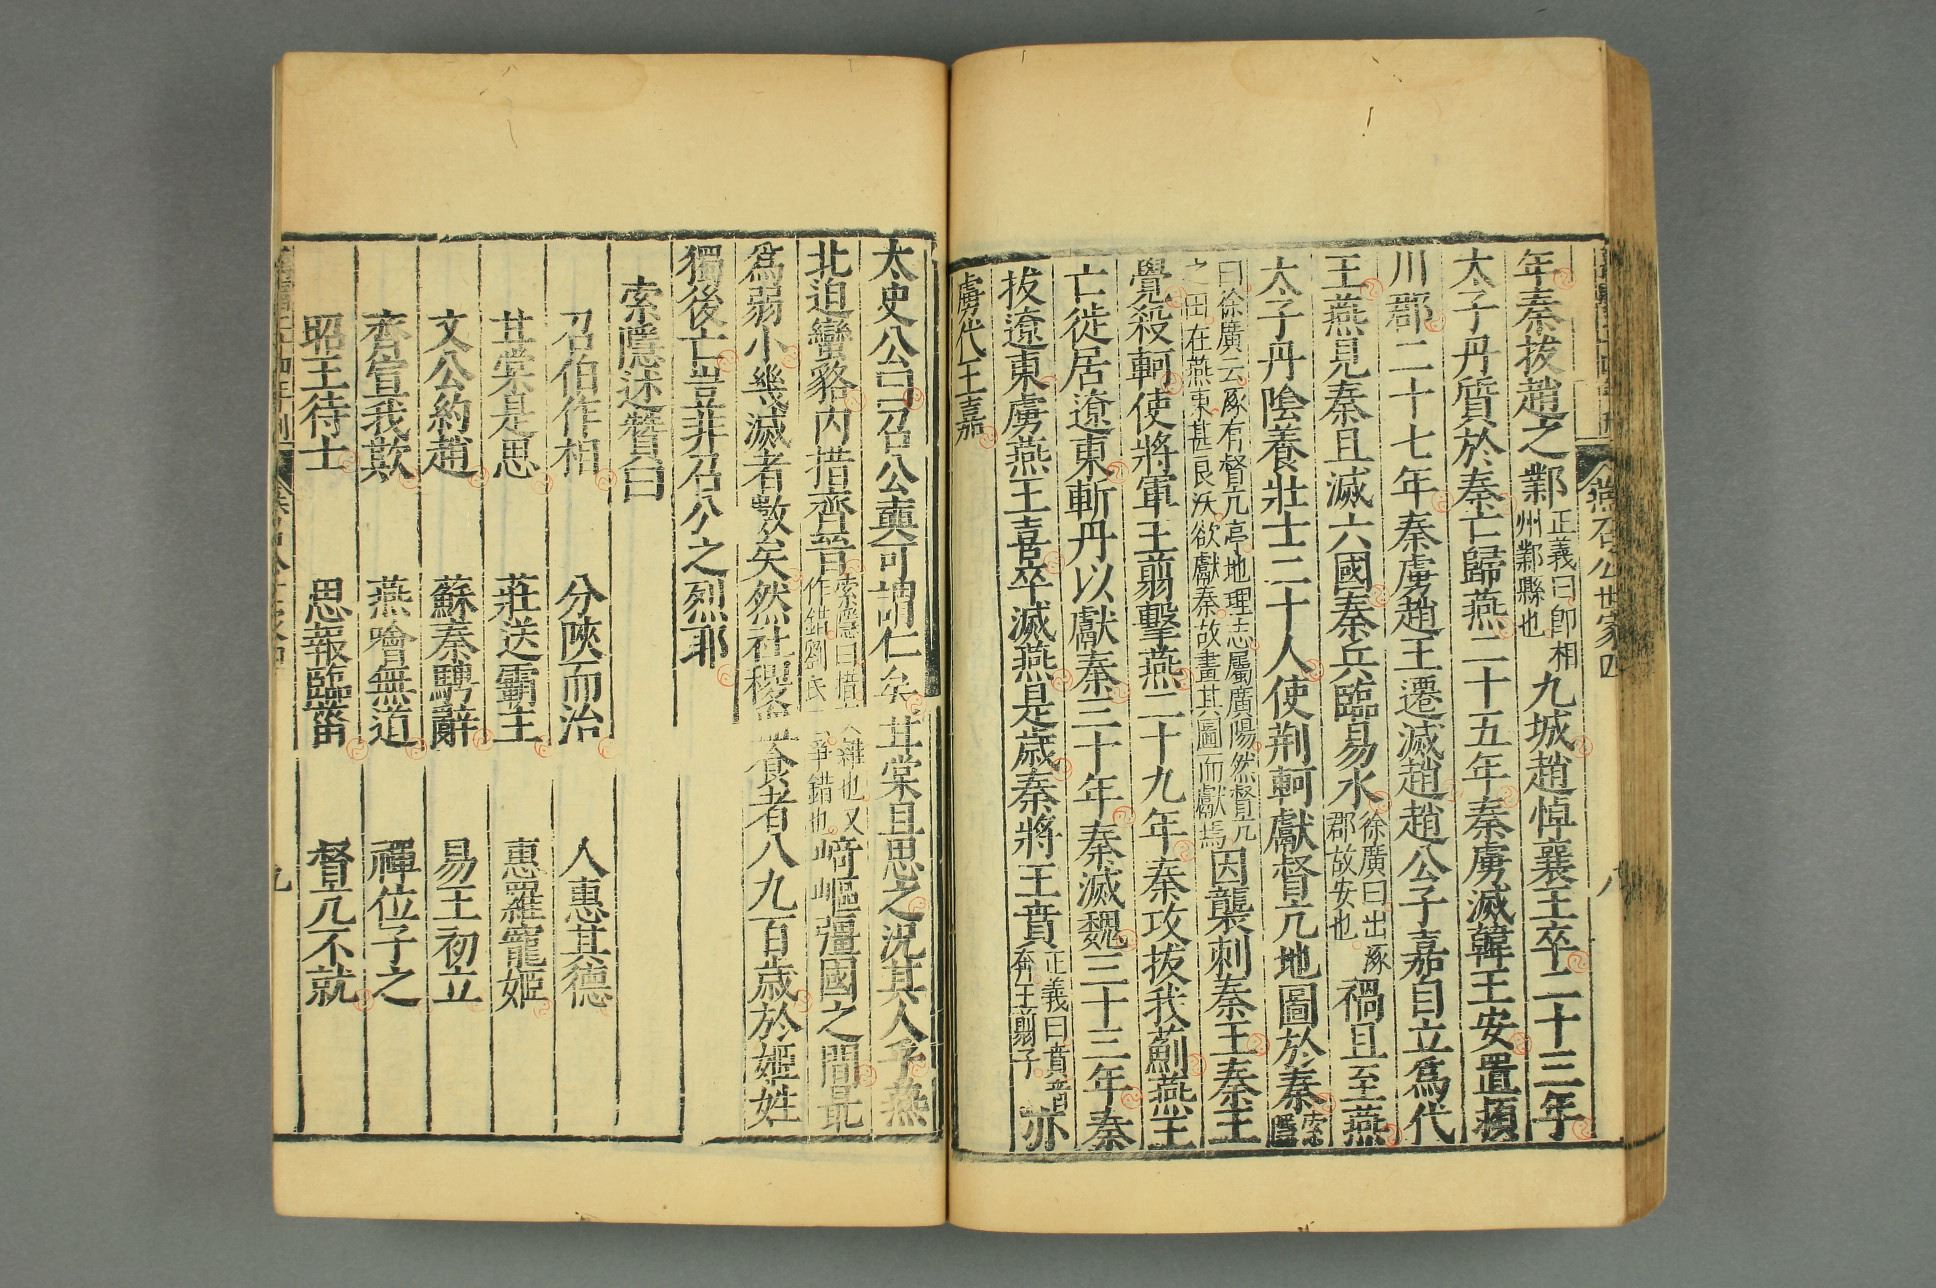 燕召公世家四
八
年秦拔趙之鄴正義曰卽相州鄴縣也九城趙悼襄王卒二十三年
太子丹質於秦亡歸燕二十五年秦虜滅韓王安置潁
川郡二十七年秦虜趙王遷滅趙趙公子嘉自立爲代
王燕見秦且滅六國秦兵臨易水徐廣曰出涿郡故安也禍且至燕
太子丹陰養壯士二十人使荆軻獻督亢地圖於秦索隱
曰徐廣云涿有督亢亭地理志屬廣陽然督亢之田在燕東甚良沃欲獻秦故畫其圖而獻焉因襲刺秦王秦王
覺殺軻使將軍王翦擊燕二十九年秦攻拔我薊燕王
亡徙居遼東斬丹以獻秦三十年秦滅魏三十三年秦
拔遼東虜燕王喜卒滅燕是歲秦將王賁正義曰賁音奔王翦子亦
虜代王嘉
太史公曰召公奭可謂仁矣甘棠且思之況其人乎燕
北迫蠻貉內措齊晉索隱曰措雜也又作錯劉氏爭錯也崎嶇彊國之間最
爲弱小幾滅者數矣然社稷血食者八九百歲於姬姓
獨後亡豈非召公之烈耶
索隱述贊曰
召伯作相 分陜而治 人惠其德
甘棠是思 莊送霸主 惠羅寵姬
文公約趙 蘇秦騁辭 易王初立
齊宣我欺 燕噲無道 禪位子之
昭王待士 思報臨菑 督亢不就
九